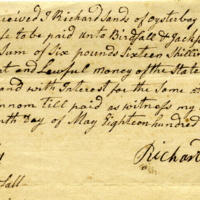 eceived I Richard Sands of Oysterbay
to be paid unto Birdsall & Jacks
Sum of Six pounds Sixteen Shillin
t and Lawful money of the State
and with Interest for the Same
annom till paid as witness my
nth Day of May Eighteen hundred
Richar
sall